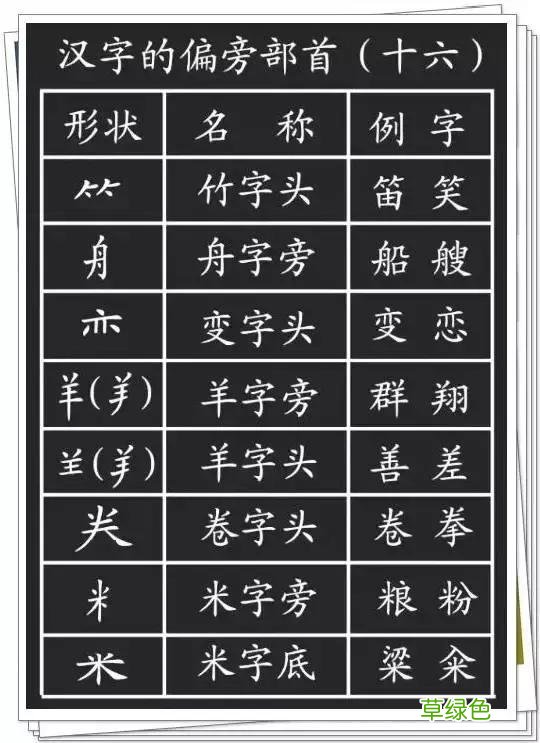 汉字的偏旁部首（十六）
形状 名称 例字
⺮ 竹字头 笛 笑
舟 舟字旁 船 艘
亦 变字头 变 恋
羊(⺶) 羊字旁 群 翔
⺷(⺶) 羊字头 善 差
龹 卷字头 卷 拳
米 米字旁 粮 粉
米 米字底 粱 籴
草绿色